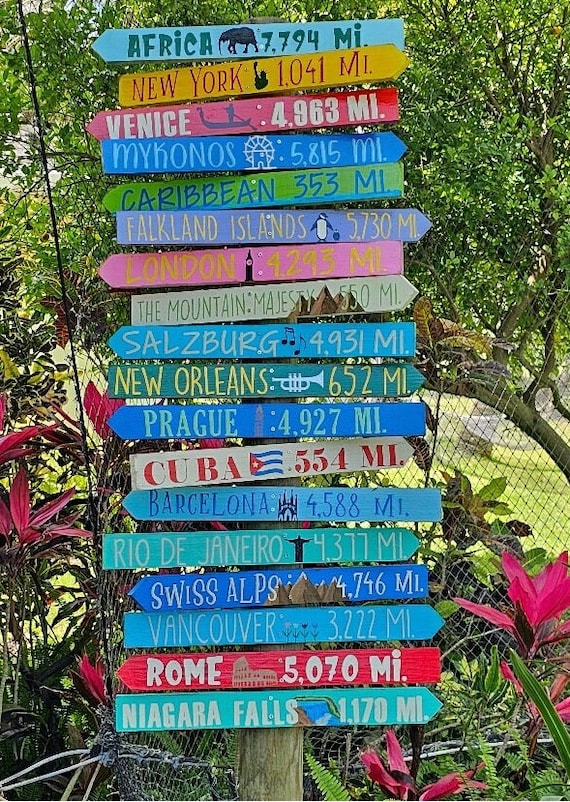 AFRICA 7,794 Mi.
NEW YORK 1,041 Mi.
VENICE 4,963 Mi.
MYKONOS 5,815 Mi.
CARIBBEAN 353 Mi.
FALKLAND ISLANDS 5,730 Mi.
LONDON 4,293 Mi.
THE MOUNTAIN MAJESTY 550 Mi.
SALZBURG 4,931 Mi.
NEW ORLEANS 652 Mi.
PRAGUE 4,927 Mi.
CUBA 554 Mi.
BARCELONA 4,588 Mi.
RIO DE JANEIRO 4,377 Mi.
SWISS ALPS 4,746 Mi.
VANCOUVER 3,222 Mi.
ROME 5,070 Mi.
NIAGARA FALLS 1,170 Mi.